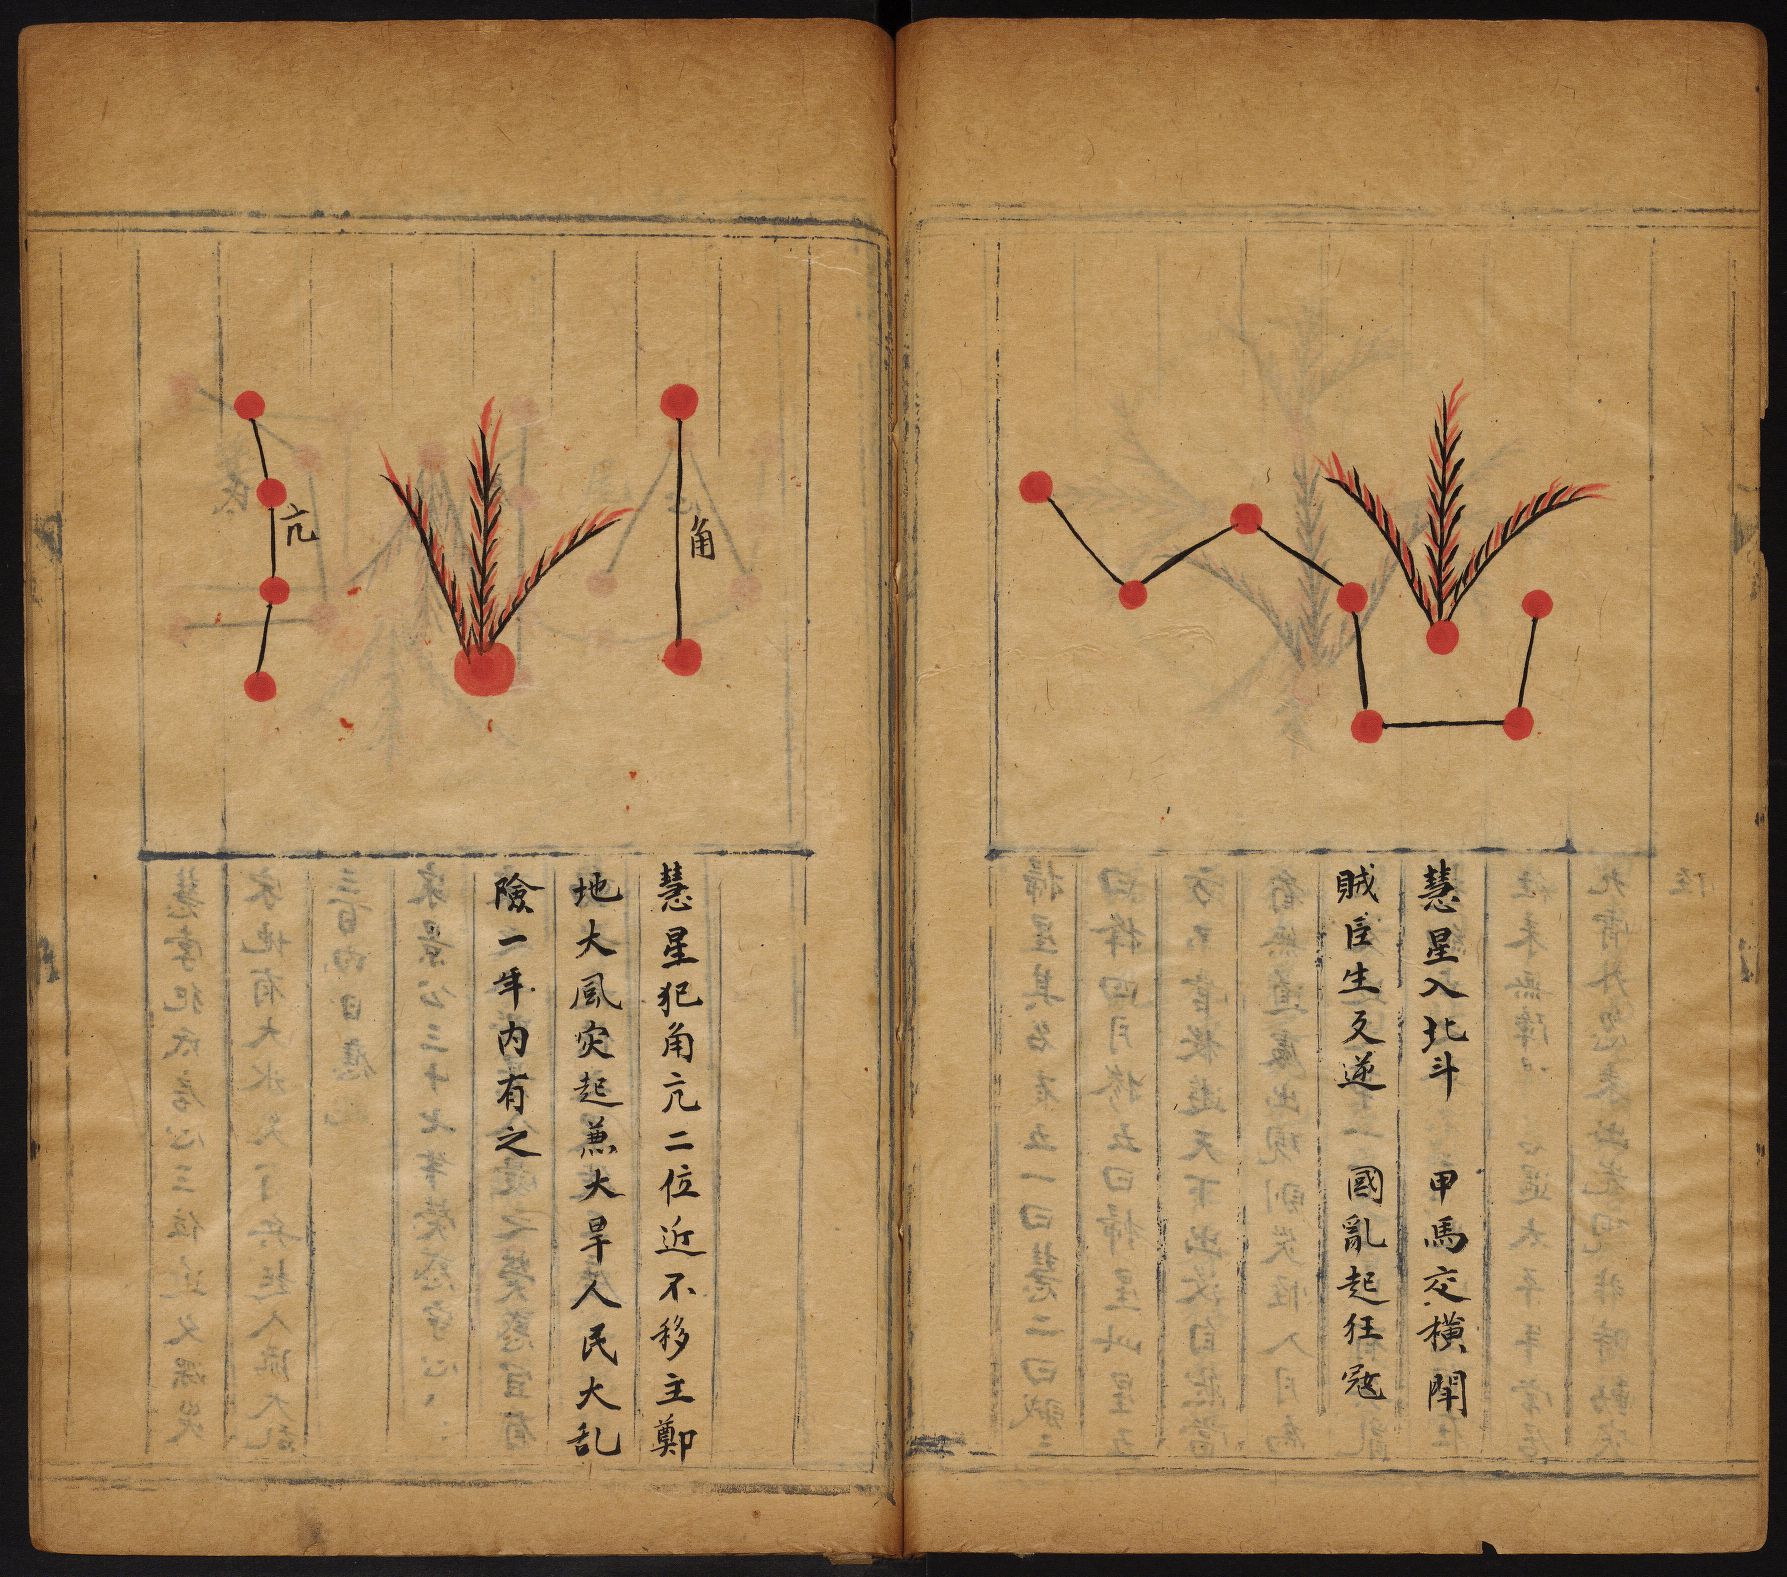 慧星入北斗 甲馬交橫閗
賊臣生反逆 國亂起狂冦
角
亢
慧星犯角亢二位近不移主鄭
地大風灾起兼大旱人民大乱
險一年内有之